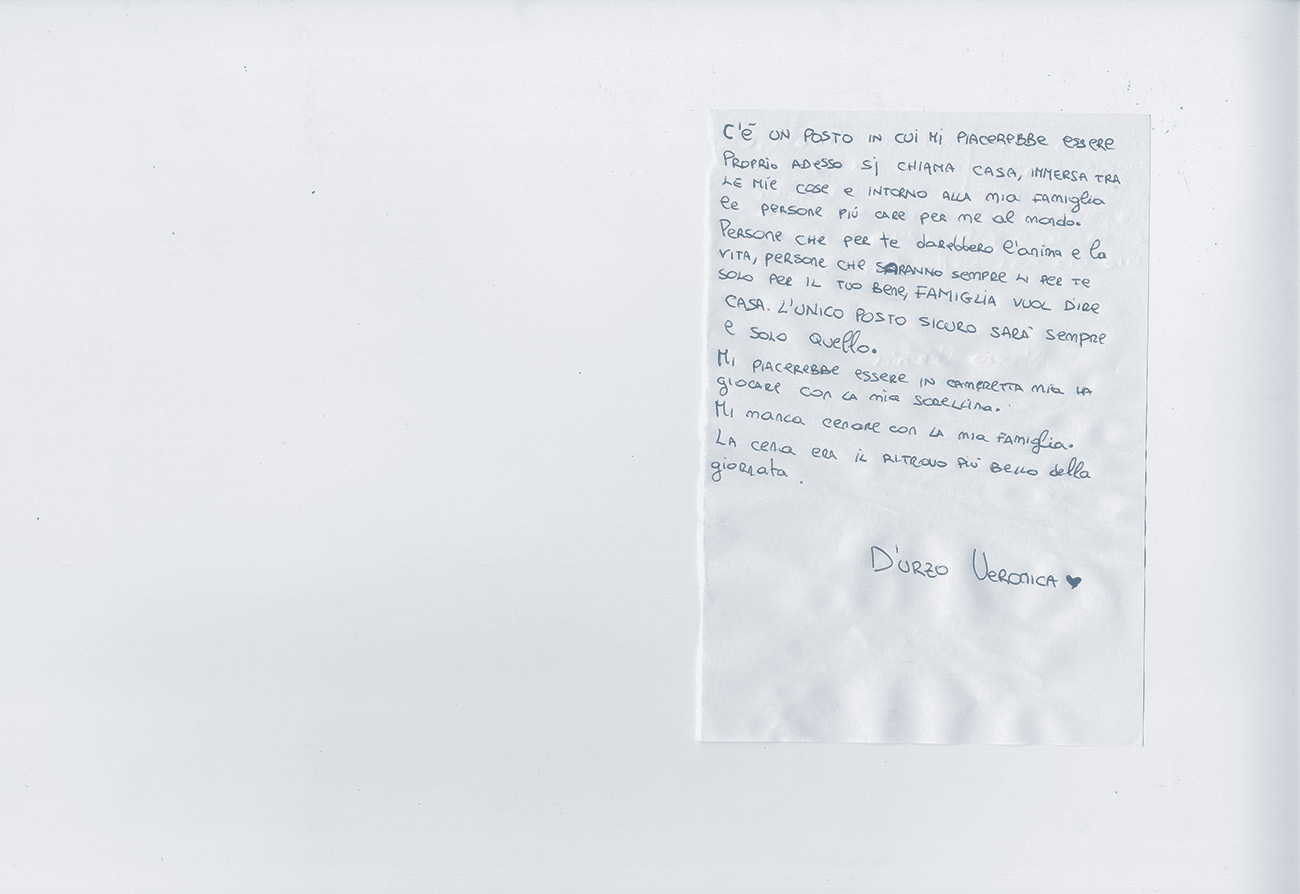 C'è UN POSTO IN CUI MI PIACEREBBE ESSERE
PROPRIO ADESSO SI CHIAMA CASA, IMMERSA TRA
LE MIE COSE E INTORNO ALLA MIA FAMIGLIA
le PERSONE PIÚ CARE PER ME AL MONDO.
PERSONE CHE PER te darebbero l'anima e la
VITA, PERSONE CHE SARANNO SEMPRE LI PER TE
SOLO PER IL TUO BENE, FAMIGLIA VUOL DIRE
CASA. L'UNICO POSTO SICURO SARA' SEMPRE
E SOLO QUELLO.
MI PIACEREBBE ESSERE IN CAMERETTA MIA HA
GIOCARE CON LA MIA SORELLINA.
MI MANCA CENARE CON LA MIA FAMIGLIA.
LA CENA ERA IL RITROVO PIÙ BELLO della
giornata.
D'URZO VERONICA ♥